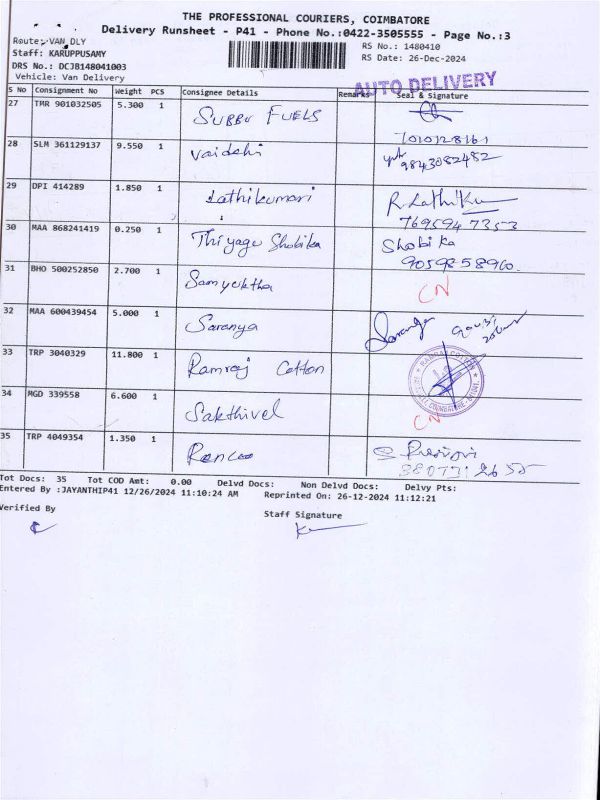 THE PROFESSIONAL COURIERS, COIMBATORE
Delivery Runsheet - P41 - Phone No.:0422-3505555 - Page No.:3
Route: VAN DLY
RS No.: 1480410
Staff: KARUPPUSAMY
RS Date: 26-Dec-2024
DRS No.: DCJB148041003
Vehicle: Van Delivery
AUTO DELIVERY
S No Consignment No Weight PCS Consignee Details Remarks Seal & Signature
27 TMR 901032505 5.300 1 SUBBU FUELS
28 SLM 361129137 9.550 1 Vaidehi 9843082482
29 DPI 414289 1.850 1 Lathikumari
30 MAA 868241419 0.250 1 Thiyagu Shobika Shobika
31 BHO 500252850 2.700 1 Samyuktha CN
32 MAA 600439454 5.000 1 Saranya
33 TRP 3040329 11.800 1 Ramraj Cotton
34 MGD 339558 6.600 1 Sakthivel CN
35 TRP 4049354 1.350 1
Tot Docs: 35 Tot COD Amt: 0.00 Delvd Docs: Non Delvd Docs: Delvy Pts:
Entered By :JAYANTHIP41 12/26/2024 11:10:24 AM Reprinted On: 26-12-2024 11:12:21
Verified By
Staff Signature